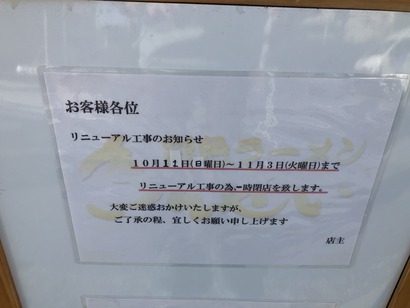 お客様各位
リニューアル工事のお知らせ
10月11日(日曜日)～11月3日(火曜日)まで
リニューアル工事の為、一時閉店を致します。
大変ご迷惑おかけいたしますが、
ご了承の程、宜しくお願い申し上げます
店主
ラーメン